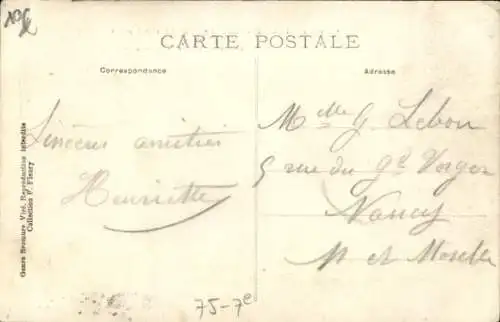 CARTE POSTALE
Correspondance
Adresse
Sincères amitiés
Henriette
Melle G. Lebon
5 rue du Gd Verger
Nancy
M et Moselle
Genre Bromure Vird. Reproduction interdite
Collection F. Fleury
75-7e